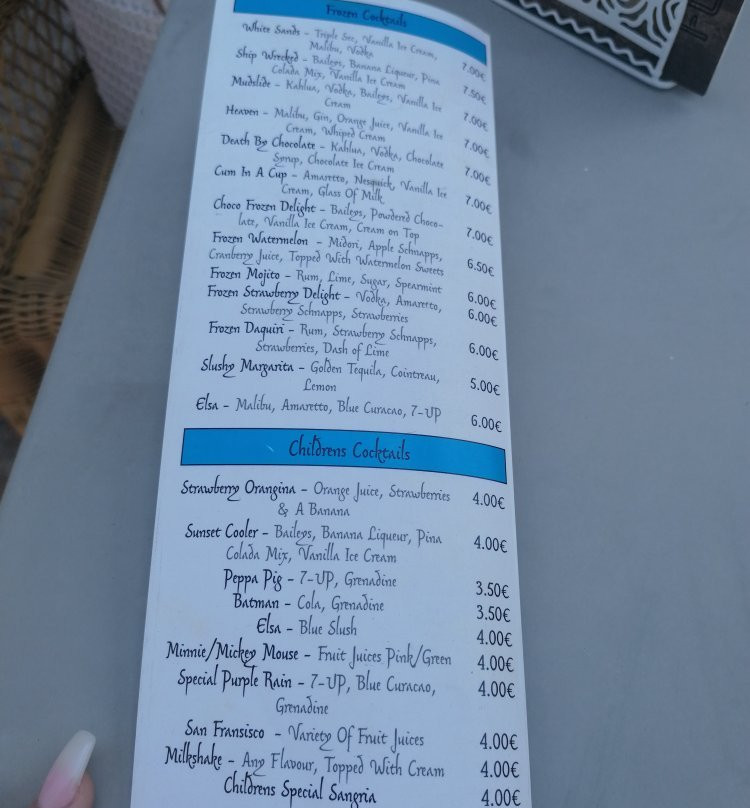 Frozen Cocktails
White Sands – Triple Sec, Vanilla Ice Cream,
Malibu, Vodka 7.00€
Ship Wrecked – Baileys, Banana Liqueur, Pina
Colada Mix, Vanilla Ice Cream 7.50€
Mudslide – Kahlua, Vodka, Baileys, Vanilla Ice
Cream 7.00€
Heaven – Malibu, Gin, Orange Juice, Vanilla Ice
Cream, Whiped Cream 7.00€
Death By Chocolate – Kahlua, Vodka, Chocolate
Syrup, Chocolate Ice Cream 7.00€
Cum In A Cup – Amaretto, Nesquick, Vanilla Ice
Cream, Glass Of Milk 7.00€
Choco Frozen Delight – Baileys, Powdered Choco-
late, Vanilla Ice Cream, Cream on Top 7.00€
Frozen Watermelon – Midori, Apple Schnapps,
Cranberry Juice, Topped With Watermelon Sweets 6.50€
Frozen Mojito – Rum, Lime, Sugar, Spearmint 6.00€
Frozen Strawberry Delight – Vodka, Amaretto, 6.00€
Strawberry Schnapps, Strawberries
Frozen Daquiri – Rum, Strawberry Schnapps, 6.00€
Strawberries, Dash of Lime
Slushy Margarita – Golden Tequila, Cointreau, 5.00€
Lemon
Elsa – Malibu, Amaretto, Blue Curacao, 7-UP 6.00€
Childrens Cocktails
Strawberry Orangina – Orange Juice, Strawberries 4.00€
& A Banana
Sunset Cooler – Baileys, Banana Liqueur, Pina 4.00€
Colada Mix, Vanilla Ice Cream
Peppa Pig – 7-UP, Grenadine 3.50€
Batman – Cola, Grenadine 3.50€
Elsa – Blue Slush 4.00€
Minnie/Mickey Mouse – Fruit Juices Pink/Green 4.00€
Special Purple Rain – 7-UP, Blue Curacao, 4.00€
Grenadine
San Fransisco – Variety Of Fruit Juices 4.00€
Milkshake – Any Flavour, Topped With Cream 4.00€
Childrens Special Sangria 4.00€